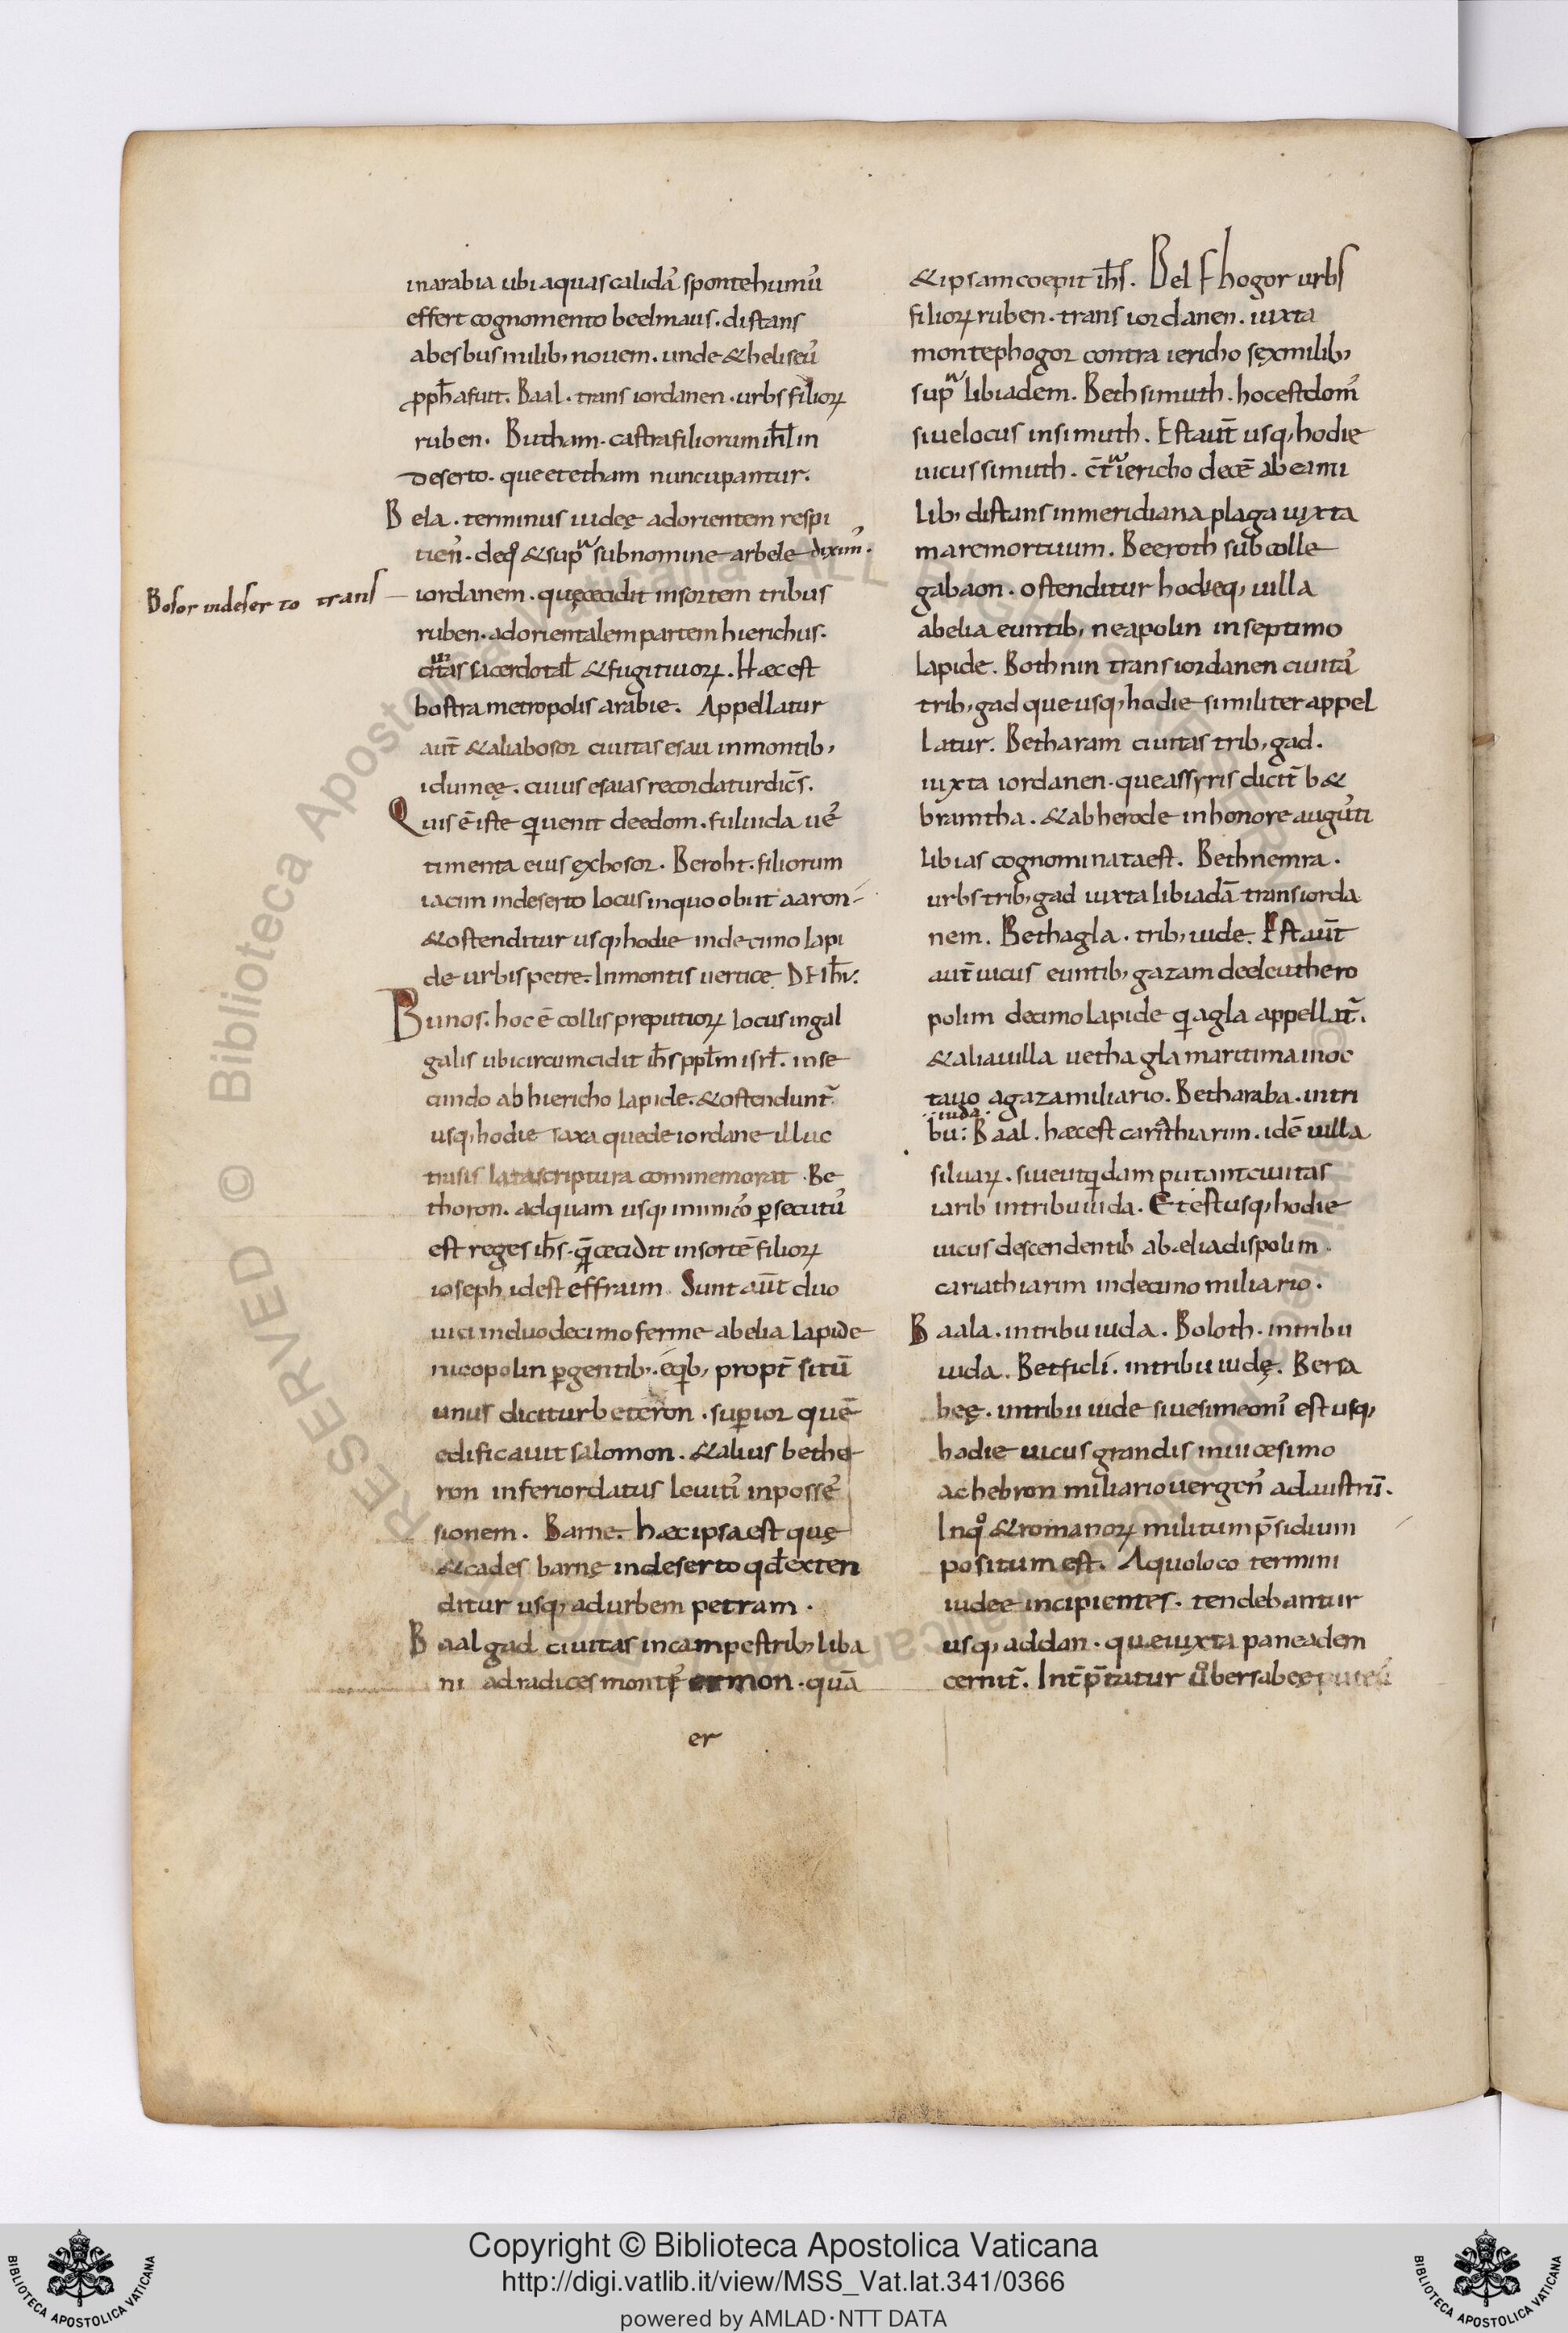 in arabia ubi aquas calidaſ᾽ sponte humu᾽
effert cognomento beelmaus. distans
ab esbus milib; nouem. unde & heliseu᾽
pph̄a fuit. Baal. trans iordanen. urbs filioꝝ
ruben. Butham. castra filiorum ihl̄ in
deserto. que et etham nuncupantur.
Bela. terminus iudeę ad orientem respi
tien᾽. de qͦ & supᵃ sub nomine arbele dixim᾽.
Bosor in deserto trans
iordanem. quę cecidit in sortem tribus
ruben. ad orientalem partem hierichus.
ciuitas sacerdotal̄ & fugitiuoꝝ. Hæc est
bostra metropolis arabie. Appellatur
aut̄ & alia bosor ciuitas esau in montib;
idumeę. cuius esaias recordatur dic̄s.
Quis ē iste qi uenit de edom. fuluida ue᾽
timenta eius ęx bosor. Beroht. filiorum
iacim in deserto locus in quo obiit aaron
& ostenditur usq; hodie in decimo lapi
de urbis petre. In montis uertice DE ih̄v:
Bunos. hoc ē collis preputioꝝ locus in gal
galis ubi circumcidit ih̄s ppl̄m isrl̄. in se
cundo ab hiericho lapide. & ostendunt᷑
usq; hodie saxa que de iordane illuc
trasis lata scriptura commemorat. Be
thoron. ad quam usq; inimico᾽ ꝑsecutu᾽
est reges ih̄s. q̄ cecidit in sortē filioꝝ
ioseph id est effraim. Sunt aūt duo
uici in duodecimo ferme ab elia lapide
nicopolin ꝑgentib;. e qib; propt̄ sitū
unus dicitur beteron. suꝑior quē
edificauit salomon. & alius betho
ron inferior datus leuiti᾽ in posse᾽
sionem. Barne. hæc ipsa est quę
& cades barnę in deserto qd̄ exten
ditur usq; ad urbem petram.
Baalgad ciuitas in campestrib; liba
ni ad radices monti᾽ ermon. quā
er
& ipsam coepit ih̄s. Bel fhogor urbs
filioꝝ ruben. trans iordanen. iuxta
monte phogor contra iericho sęx milib;
supᵃ libiadem. Bethsimuth. hoc est dom᾽
siue locus insimuth. Est aut̄ usq; hodie
uicus simuth. c̄tᵃ iericho decē ab ea mi
lib; distans in meridiana plaga iuxta
mare mortuum. Beeroth sub colle
gabaon. ostenditur hodieq; uilla
ab elia euntib; neapolin in septimo
lapide. Bothnin trans iordanen ciuita᾽
trib; gad que usq; hodie similiter appel
latur. Betharam ciuitas trib; gad.
iuxta iordanen. que assyris dicit᷑ b&
bramtha. & ab herode in honore augu᾽ti
libias cognominata est. Bethnemra.
urbs trib; gad iuxta libiadā trans iorda
nem. Bethagla. trib; iude. Est aūt
aut̄ uicus euntib; gazam de eleuthero
polim decimo lapide qi agla appellat᷑.
& alia uilla uethagla maritima in oc
tauo a gaza miliario. Betharaba. in tri
iuda.
bu: Baal. hæc est cariathiarim. idē uilla
siluaꝝ. siue ut qidam putant ciuitas
iarib in tribu iuda. Et est usq; hodie
uicus descendentib ab ælia dispolim
cariathiarim in decimo miliario.
Baala. in tribu iuda. Boloth. in tribu
iuda. Betficli. in tribu iudę. Bersa
beę. in tribu iude siue simeoni᾽ est usq;
hodie uicus grandis in uicesimo
a chebron miliario uergen᾽ ad austrū.
In qͦ & romanoꝝ militum p̄sidium
positum est. A quo loco termini
iudee incipientes. tendebantur
usq; ad dan. que iuxta paneadem
cernit᷑. Int̄p̄tatur uͦ bersabeę puteu᾽